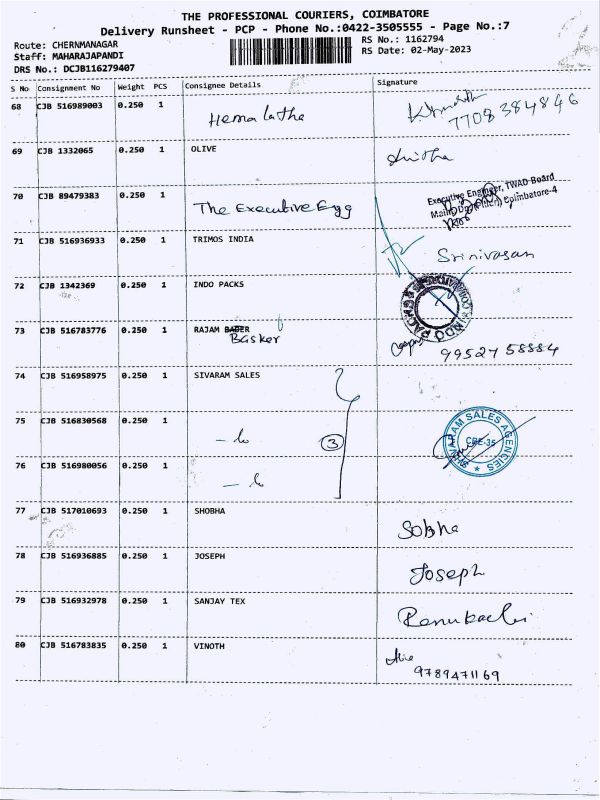 THE PROFESSIONAL COURIERS, COIMBATORE
Delivery Runsheet - PCP - Phone No.:0422-3505555 - Page No.:7
Route: CHERNMANAGAR
RS No.: 1162794
Staff: MAHARAJAPANDI
RS Date: 02-May-2023
DRS No.: DCJB116279407
S No Consignment No Weight PCS Consignee Details Signature
68 CJB 516989003 0.250 1 Hema latha
7708384846
69 CJB 1332065 0.250 1 OLIVE
70 CJB 89479383 0.250 1 The Executive Egg
Executive Engineer, TWAD Board
Coimbatore-4
71 CJB 516936933 0.250 1 TRIMOS INDIA Srinivasan
72 CJB 1342369 0.250 1 INDO PACKS
INDO PACK
73 CJB 516783776 0.250 1 RAJAM BABER
Basker
99527 58884
74 CJB 516958975 0.250 1 SIVARAM SALES
75 CJB 516830568 0.250 1
3
SIVARAM SALES AGENCIES
CBE-35
76 CJB 516980056 0.250 1
77 CJB 517010693 0.250 1 SHOBHA Sobha
78 CJB 516936885 0.250 1 JOSEPH Joseph
79 CJB 516932978 0.250 1 SANJAY TEX
80 CJB 516783835 0.250 1 VINOTH
9789471169